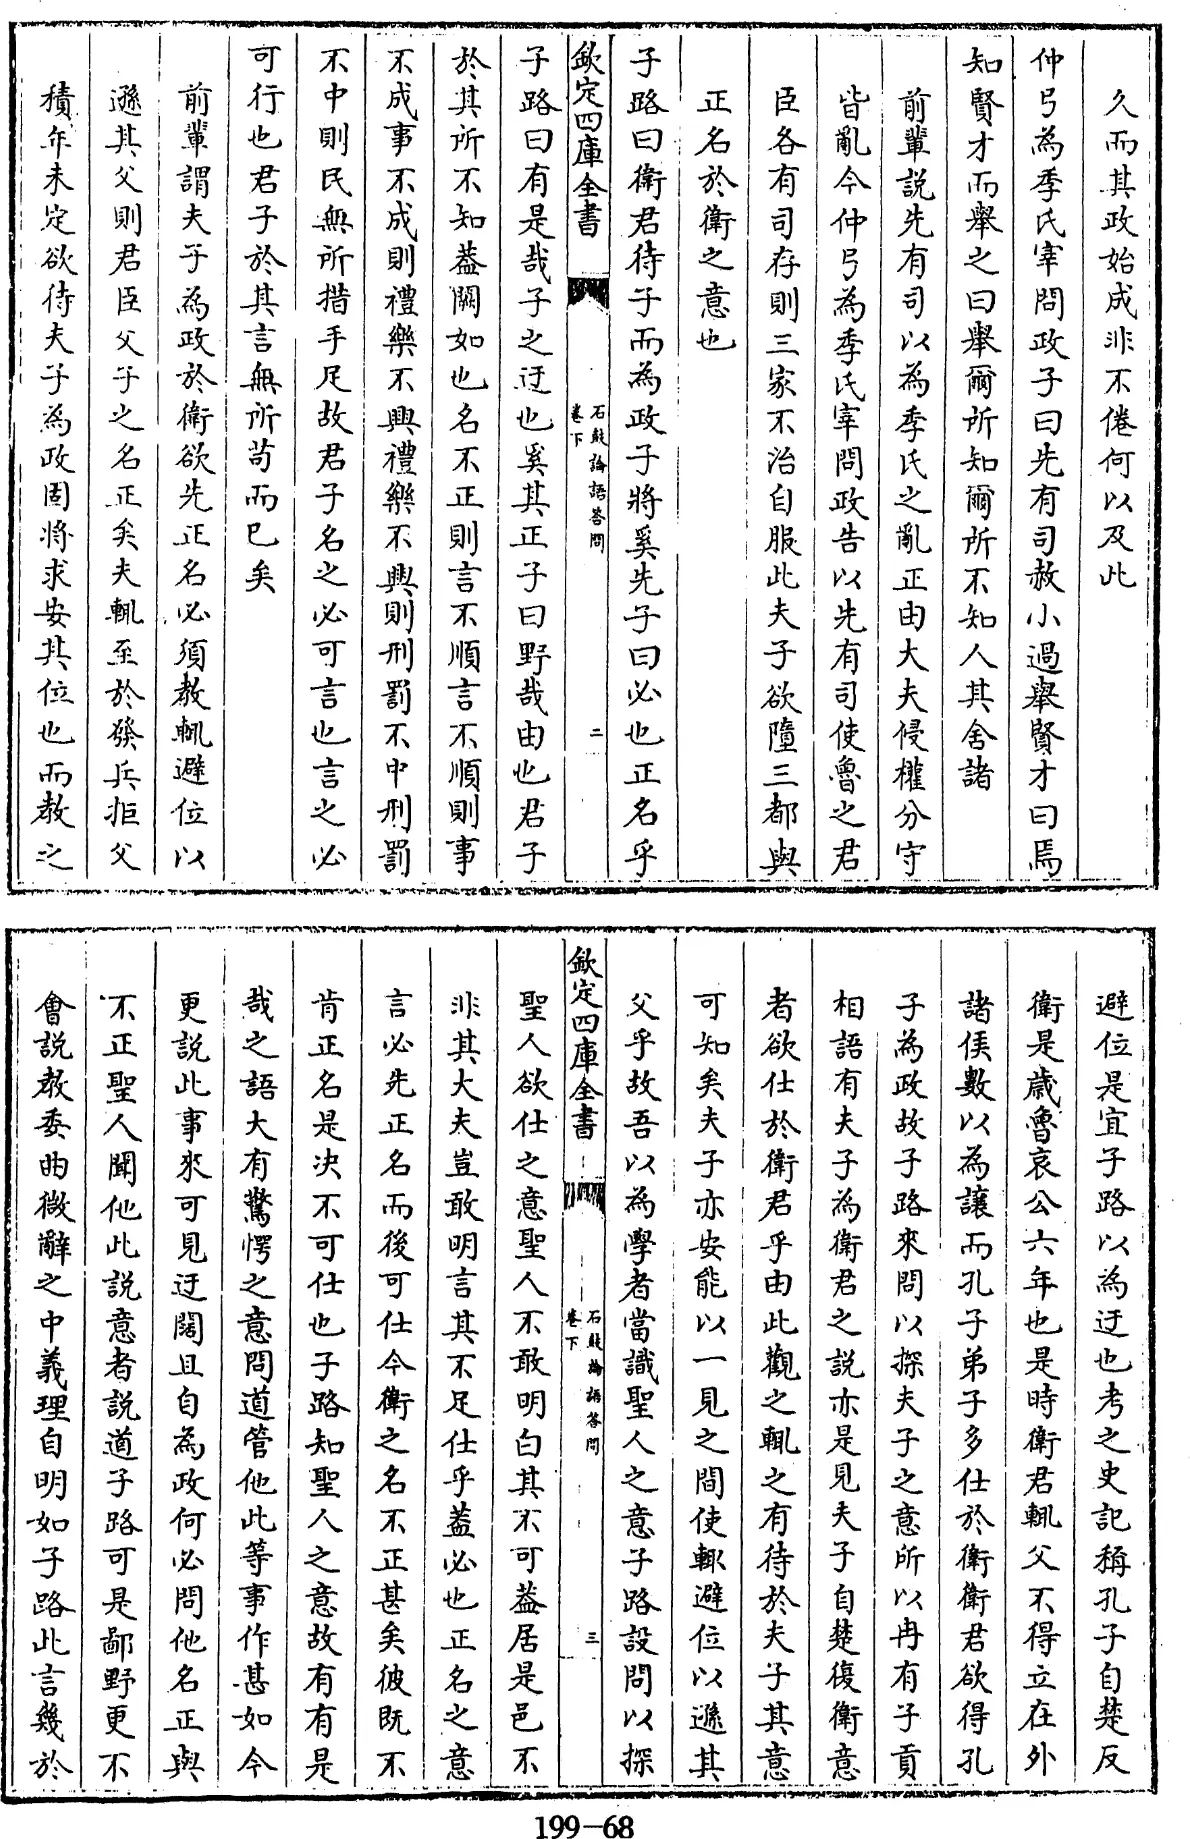 久而其政始成非不倦何以及此
仲弓為季氏宰問政子曰先有司赦小過舉賢才曰焉
知賢才而舉之曰舉爾所知爾所不知人其舍諸
前輩説先有司以為季氏之亂正由大夫侵權分守
皆亂今仲弓為季氏宰問政告以先有司使魯之君
臣各有司存則三家不治自服此夫子欲墮三都與
正名於衛之意也
子路曰衛君待子而為政子將奚先子曰必也正名乎
欽定四庫全書
石鼓論語答問
卷下
二
子路曰有是哉子之迂也奚其正子曰野哉由也君子
於其所不知葢闕如也名不正則言不順言不順則事
不成事不成則禮樂不興禮樂不興則刑罰不中刑罰
不中則民無所措手足故君子名之必可言也言之必
可行也君子於其言無所苟而已矣
前輩謂夫子為政於衛欲先正名必須教輒避位以
遜其父則君臣父子之名正矣夫輒至於發兵拒父
積年未定欲待夫子為政固將求安其位也而教之
避位是宜子路以為迂也考之史記稱孔子自楚反
衛是歲魯哀公六年也是時衛君輒父不得立在外
諸侯數以為讓而孔子弟子多仕於衛衛君欲得孔
子為政故子路來問以探夫子之意所以冉有子貢
相語有夫子為衛君之説亦是見夫子自楚復衛意
者欲仕於衛君乎由此觀之輒之有待於夫子其意
可知矣夫子亦安能以一見之間使輒避位以遜其
父乎故吾以為學者當識聖人之意子路設問以探
欽定四庫全書
石鼓論語答問
卷下
三
聖人欲仕之意聖人不敢明白其不可葢居是邑不
非其大夫豈敢明言其不足仕乎葢必也正名之意
言必先正名而後可仕今衛之名不正甚矣彼既不
肯正名是决不可仕也子路知聖人之意故有有是
哉之語大有驚愕之意問道管他此等事作甚如今
更説此事來可見迂闊且自為政何必問他名正與
不正聖人聞他此説意者説道子路可是鄙野更不
會説教委曲微辭之中義理自明如子路此言幾於
199-68